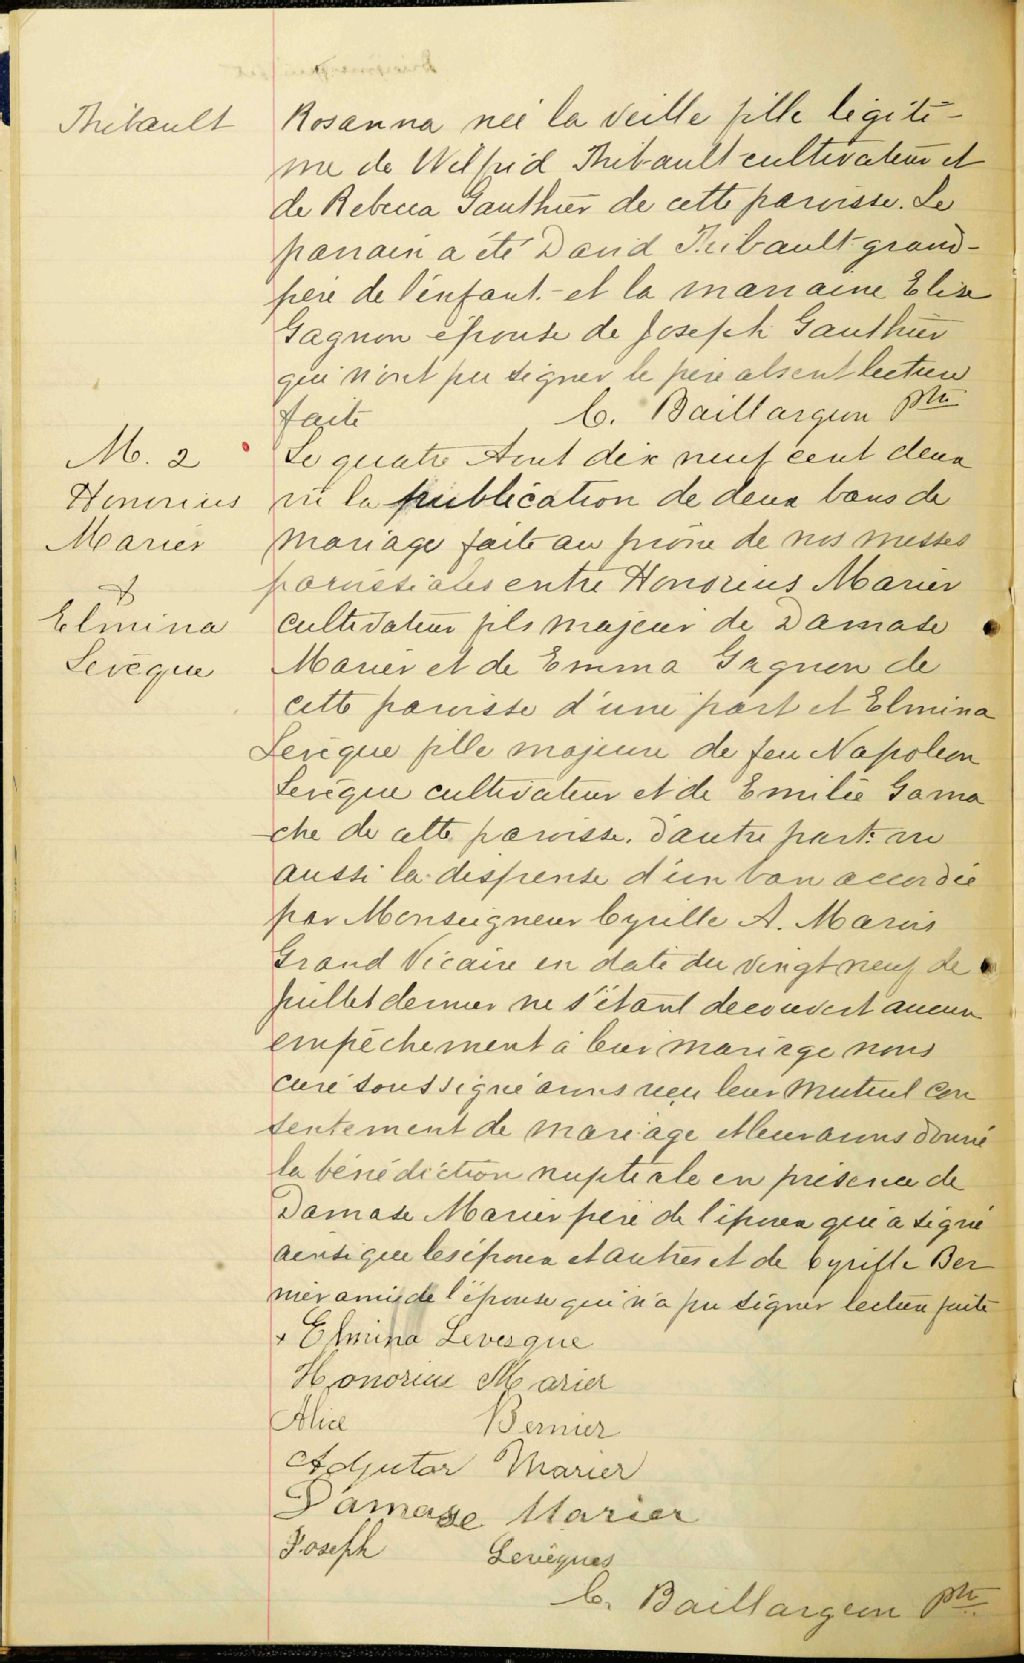 Thibault
Rosanna née la veille fille légiti-
me de Wilfrid Thibault cultivateur et
de Rebecca Gauthier de cette paroisse. Le
parrain a été David Thibault grand-
père de l'enfant. et la marraine Elise
Gagnon épouse de Joseph Gauthier
qui n'ont pu signer le père absent lecture
faite C. Baillargeon ptre
M. 2
Honorius
Marier
&
Elmina
Levêque
Le quatre Aout dix neuf cent deux
vu la publication de deux bans de
mariage faite au prône de nos messes
paroissiales entre Honorius Marier
cultivateur fils majeur de Damase
Marier et de Emma Gagnon de
cette paroisse d'une part et Elmina
Levêque fille majeure de feu Napoleon
Levêque cultivateur et de Emilie Gama
-che de cette paroisse. d'autre part: vu
aussi la dispense d'un ban accordée
par Monseigneur Cyrille A. Marois
Grand Vicaire en date du vingt neuf de
Juillet dernier ne s'étant decouvert aucun
empêchement à leur mariage nous
curé soussigné avons reçu leur mutuel con
sentement de mariage et leur avons donné
la bénédiction nuptiale en présence de
Damase Marier père de l'époux qui a signé
ainsi que les époux et autres et de Cyrille Ber
nier ami de l'épouse qui n'a pu signer lecture faite
x Elmina Levesque
Honorius Marier
Alice Bernier
Adjutor Marier
Damase Marier
Joseph Levêques
C. Baillargeon ptre